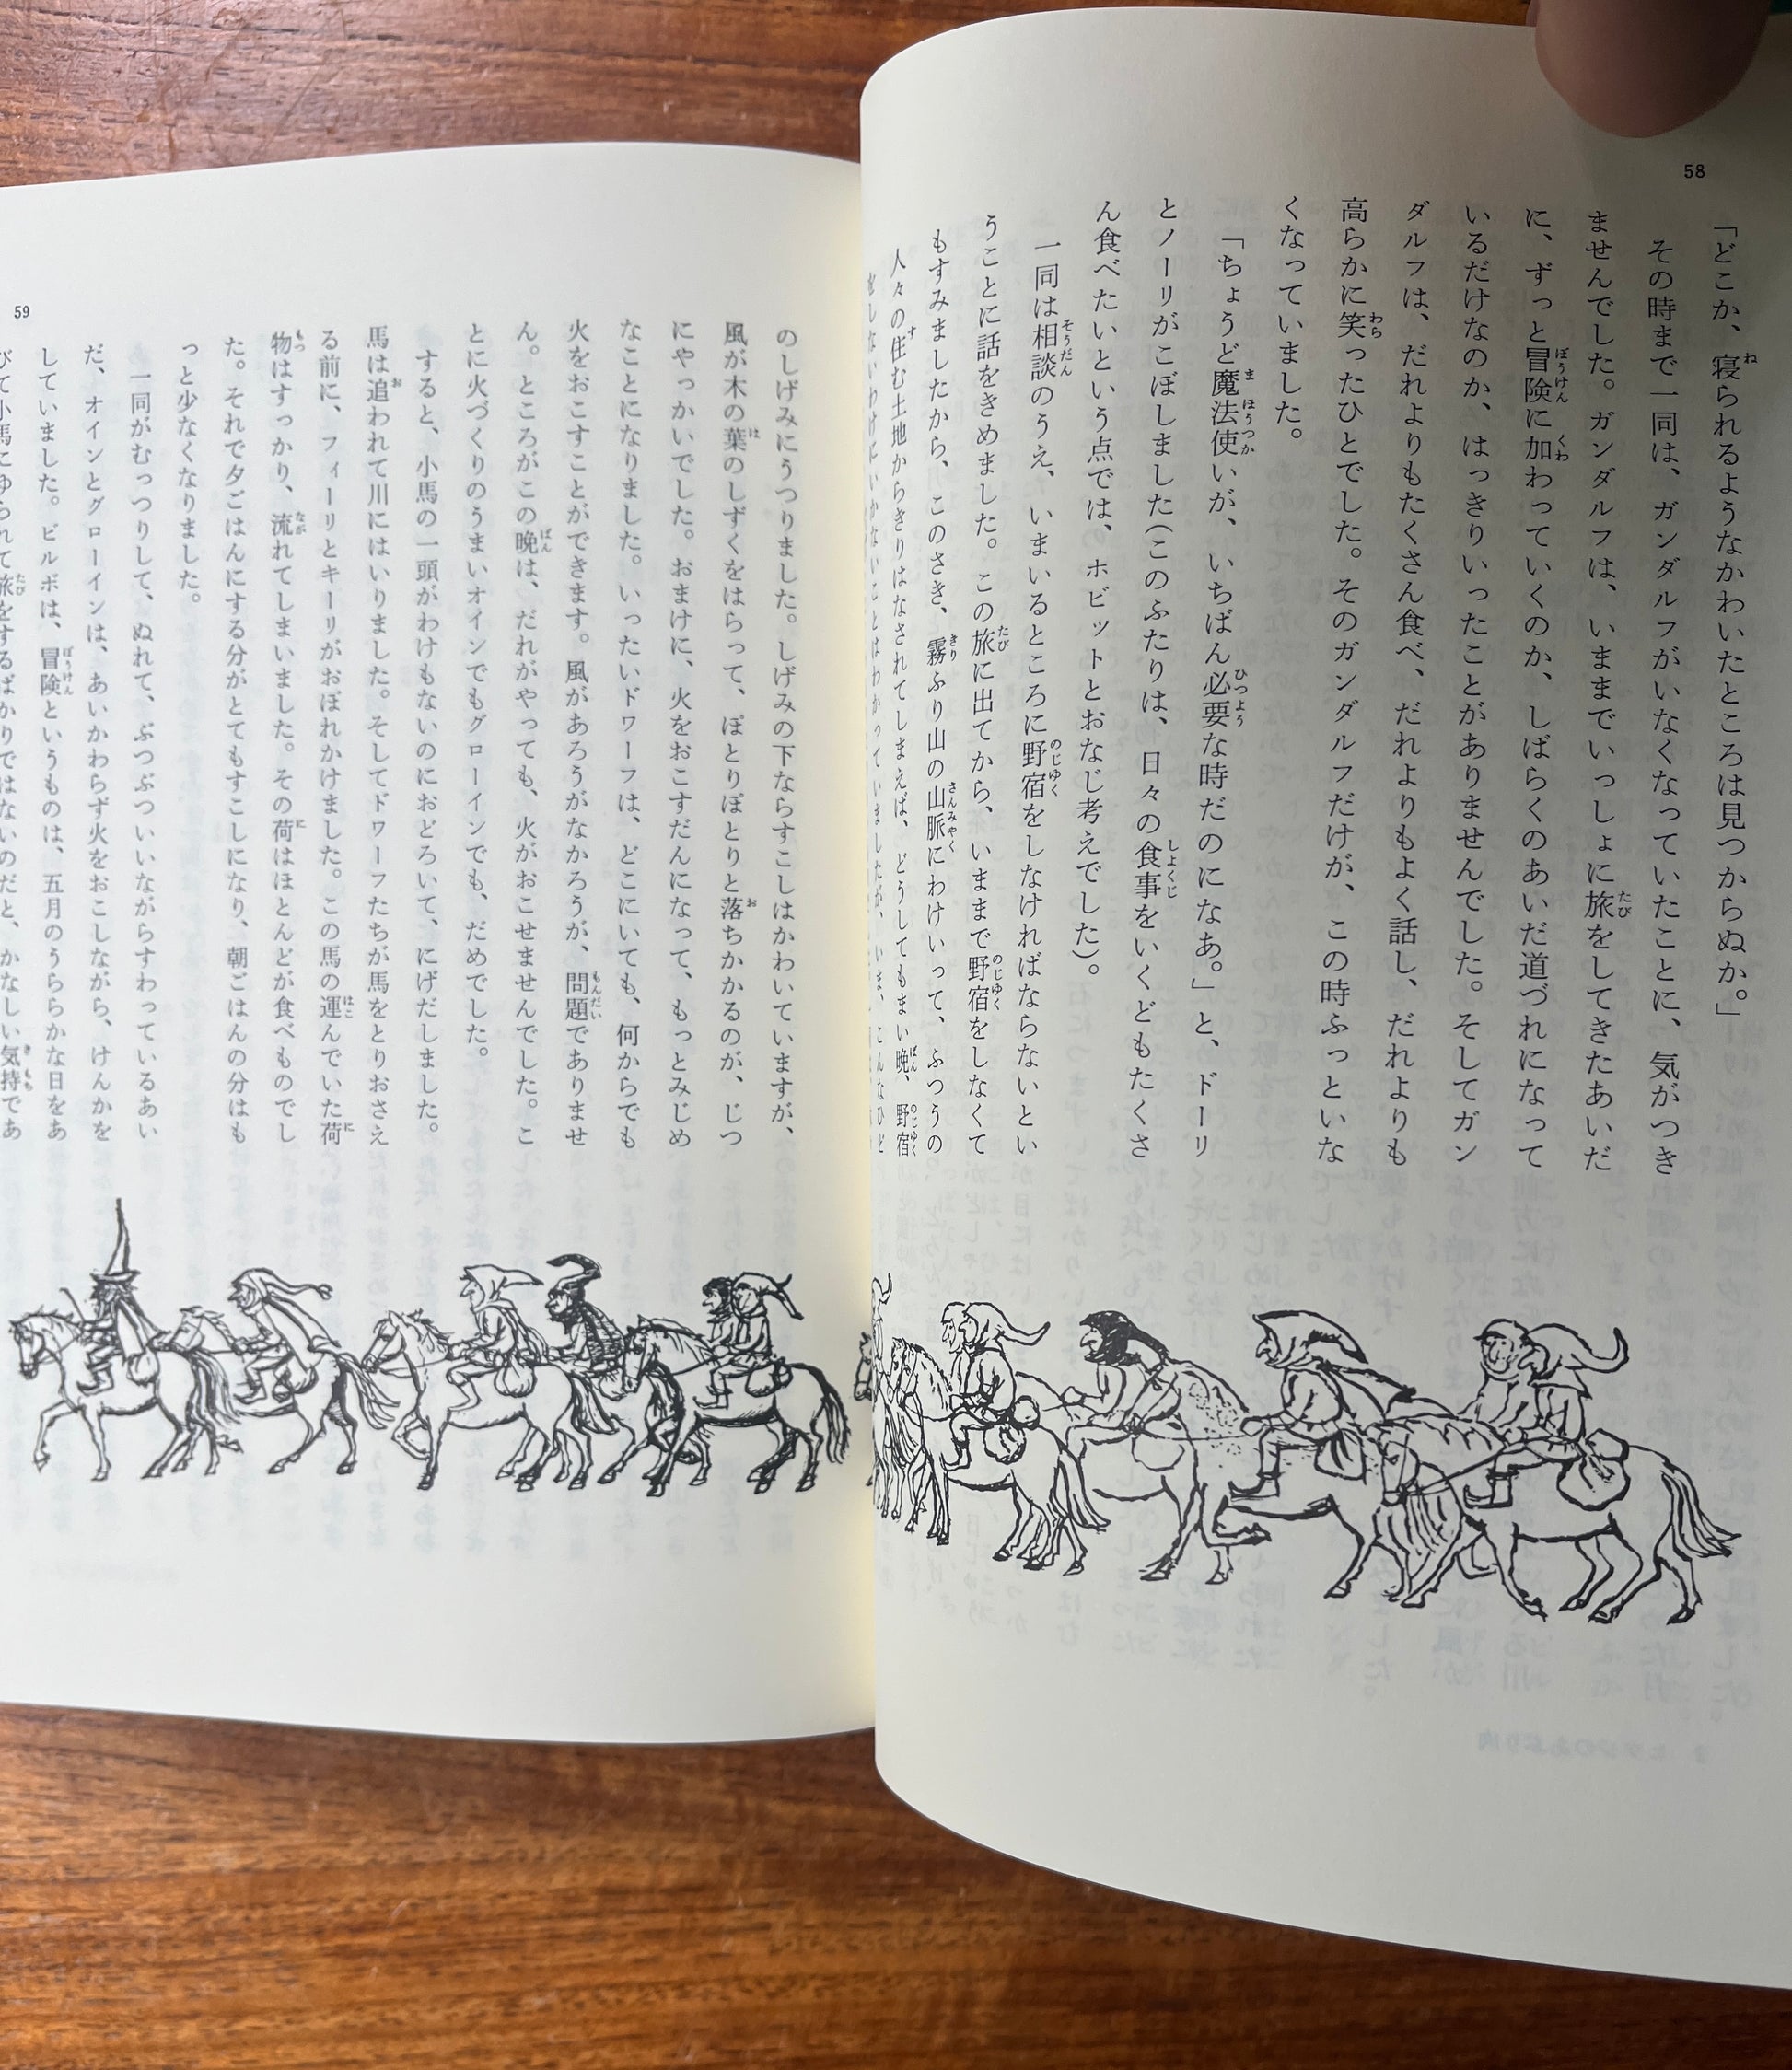 58
「どこか、寝られるようなかわいたところは見つからぬか。」
その時まで一同は、ガンダルフがいなくなっていたことに、気がつき
ませんでした。ガンダルフは、いままでいっしょに旅をしてきたあいだ
に、ずっと冒険に加わっていくのか、しばらくのあいだ道づれになって
いるだけなのか、はっきりいったことがありませんでした。そしてガン
ダルフは、だれよりもたくさん食べ、だれよりもよく話し、だれよりも
高らかに笑ったひとでした。そのガンダルフだけが、この時ふっといな
くなっていました。
「ちょうど魔法使いが、いちばん必要な時だのになあ。」と、ドーリ
とノーリがこぼしました（このふたりは、日々の食事をいくどもたくさ
ん食べたいという点では、ホビットとおなじ考えでした）。
一同は相談のうえ、いまいるところに野宿をしなければならないとい
うことに話をきめました。この旅に出てから、いままで野宿をしなくて
もすみましたから、このさき、霧ふり山の山脈にわけいって、ふつうの
人々の住む土地からきりはなされてしまえば、どうしてもまい晩、野宿
をしないわけにいかないことはわかっていましたが、いま、こんなひど
59
のしげみにうつりました。しげみの下ならすこしはかわいていますが、
風が木の葉のしずくをはらって、ぽとりぽとりと落ちかかるのが、じつ
にやっかいでした。おまけに、火をおこすだんになって、もっとみじめ
なことになりました。いったいドワーフは、どこにいても、何からでも
火をおこすことができます。風があろうがなかろうが、問題でありませ
ん。ところがこの晩は、だれがやっても、火がおこせませんでした。こ
とに火づくりのうまいオインでもグローインでも、だめでした。
すると、小馬の一頭がわけもないのにおどろいて、にげだしました。
馬は追われて川にはいりました。そしてドワーフたちが馬をとりおさえ
る前に、フィーリとキーリがおぼれかけました。この馬の運んでいた荷
物はすっかり、流れてしまいました。その荷はほとんどが食べものでし
た。それで夕ごはんにする分がとてもすこしになり、朝ごはんの分はも
っと少なくなりました。
一同がむっつりして、ぬれて、ぶつぶついいながらすわっているあい
だ、オインとグローインは、あいかわらず火をおこしながら、けんかを
していました。ビルボは、冒険というものは、五月のうららかな日をあ
びて小馬にゆられて旅をするばかりではないのだと、かなしい気持であ